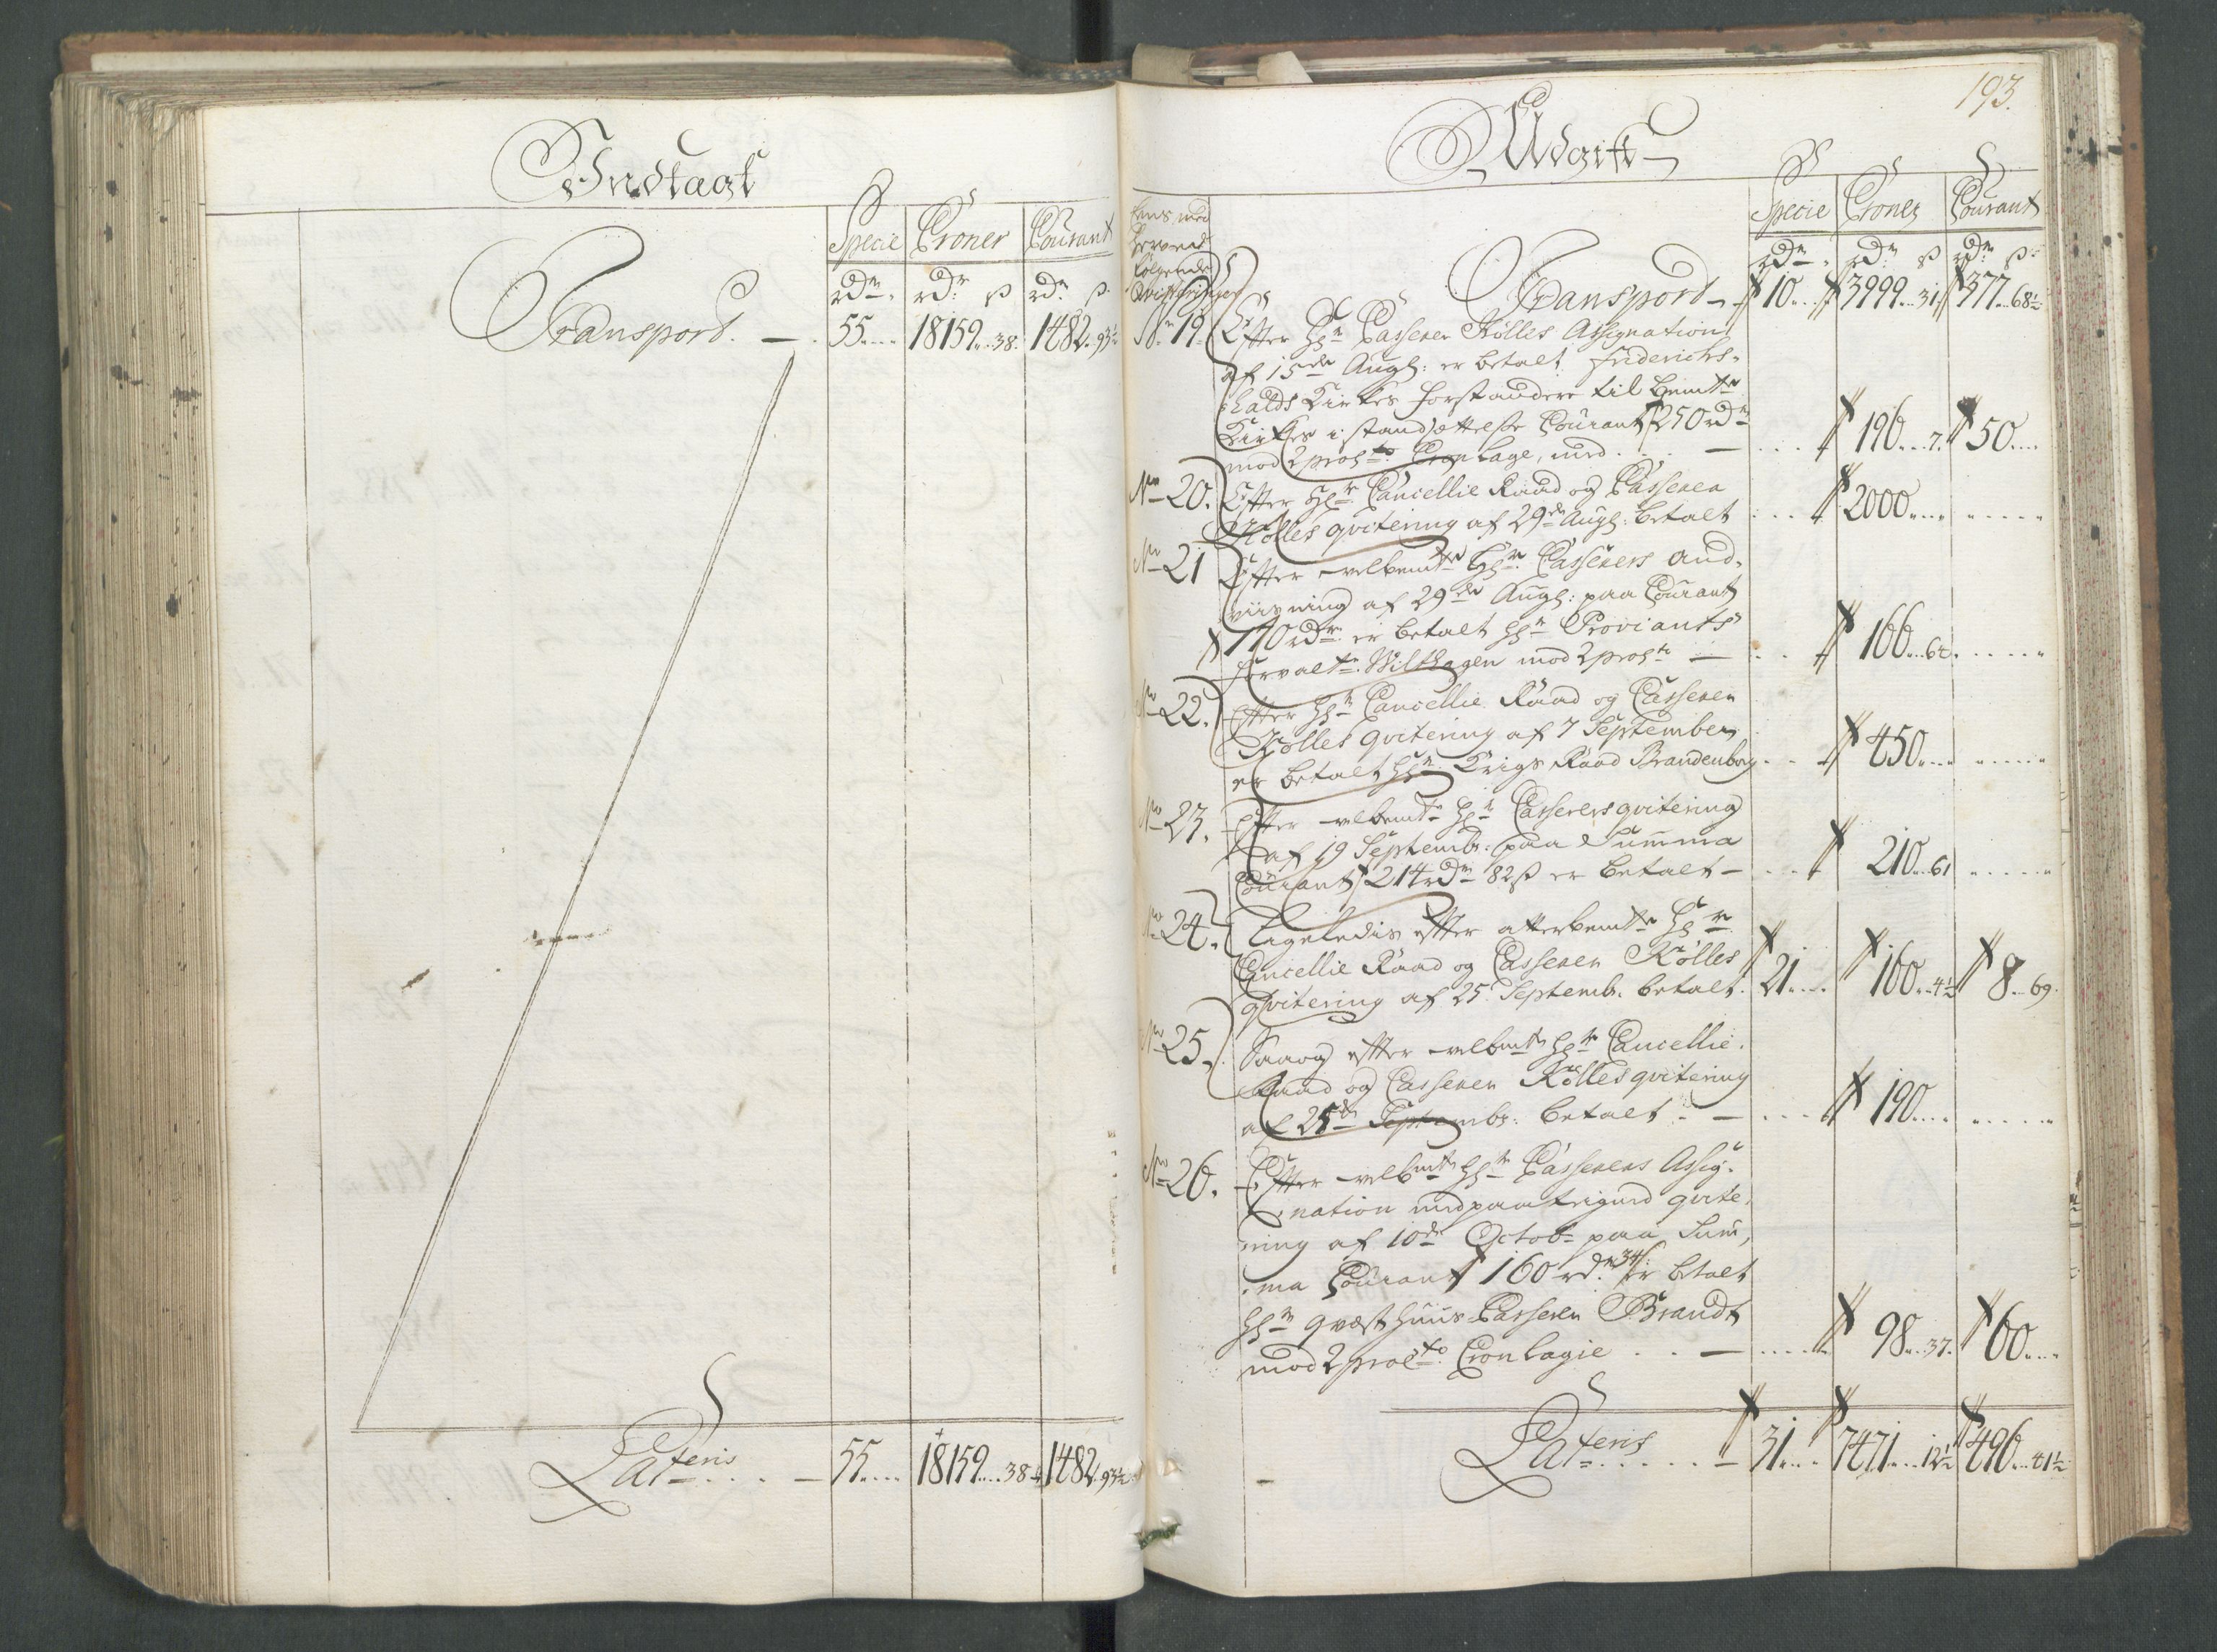 Indtægt
Specie Croner Courant
rdr. rdr. ß rdr. ß
Transport. — 55.... 18159...38. 1482..93½
Lateris.... — 55.... 18159....38 1482..93½
193.
Udgift
Specie Croner Courant
rdr. rdr. ß rdr. ß
Eens med
herved
følgende
Qviteringer
Transport — 10... 3999...31 377..68½
No. 19. Efter Hr. Casserer Kølles Assignation
af 15de Aug: er betalt Friderichs-
halds Kirkes Forstandere til bemte
Kirkes istandsættelse Courant 250 rdr.
mod 2 proCto. Cronlage, med.... — 196...7. 50....
No. 20. Efter Hr. Cancellie Raad og Casserer
Kølles qvitering af 29de Aug: betalt .... 2000.... .....
No. 21 Efter velbemte Hr. Casserers and-
viisning af 29de Aug: paa Courant
170 rdr. er betalt Hr. Proviants
Forvaltr. Wilthagen mod 2 proCto — ... 166...64. .....
No. 22. Efter Hr. Cancellie Raad og Casserer
Kølles qvitering af 7 September
er betalt Hr. Krigs Raad Brandenborg ... 450.... .....
No. 23. Efter velbemte Hr. Casserers qvitering
af 19 Septembr: paa Summa
Courant 214 rdr. 82 ß er betalt — ... 210...61 .....
No. 24. Ligeledis efter atterbemte Hr.
Cancellie Raad og Casserer Kølles
qvitering af 25. Septemb. betalt. 21.... 160...4½ 8...69.
No. 25. Saaog efter velbemte Hr. Cancellie-
Raad og Casserer Kølles qvitering
af 25de Septembr: betalt - — .... 190.... .....
No. 26. Efter velbemte Hr. Casserers Assig-
nation med paateigned qvite-
ring af 10de Octobr paa Sum-
ma Courant 160 rdr. 34 ß er betalt
Hr. qvæsthuus Casserer Brandt
mod 2 proCto. Cronlagie .. — .... 98...37. 60....
Lateris..... — 31.... 7471...12½ 496...41½